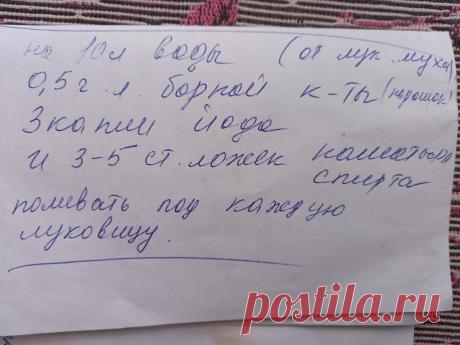 на 10л воды (от лук. муха)
0,5 г. л. борной к-ты (порошок)
3 капли йода
и 3-5 ст. ложек нашатырн
спирта
поливать под каждую
луковицу.
postila.ru